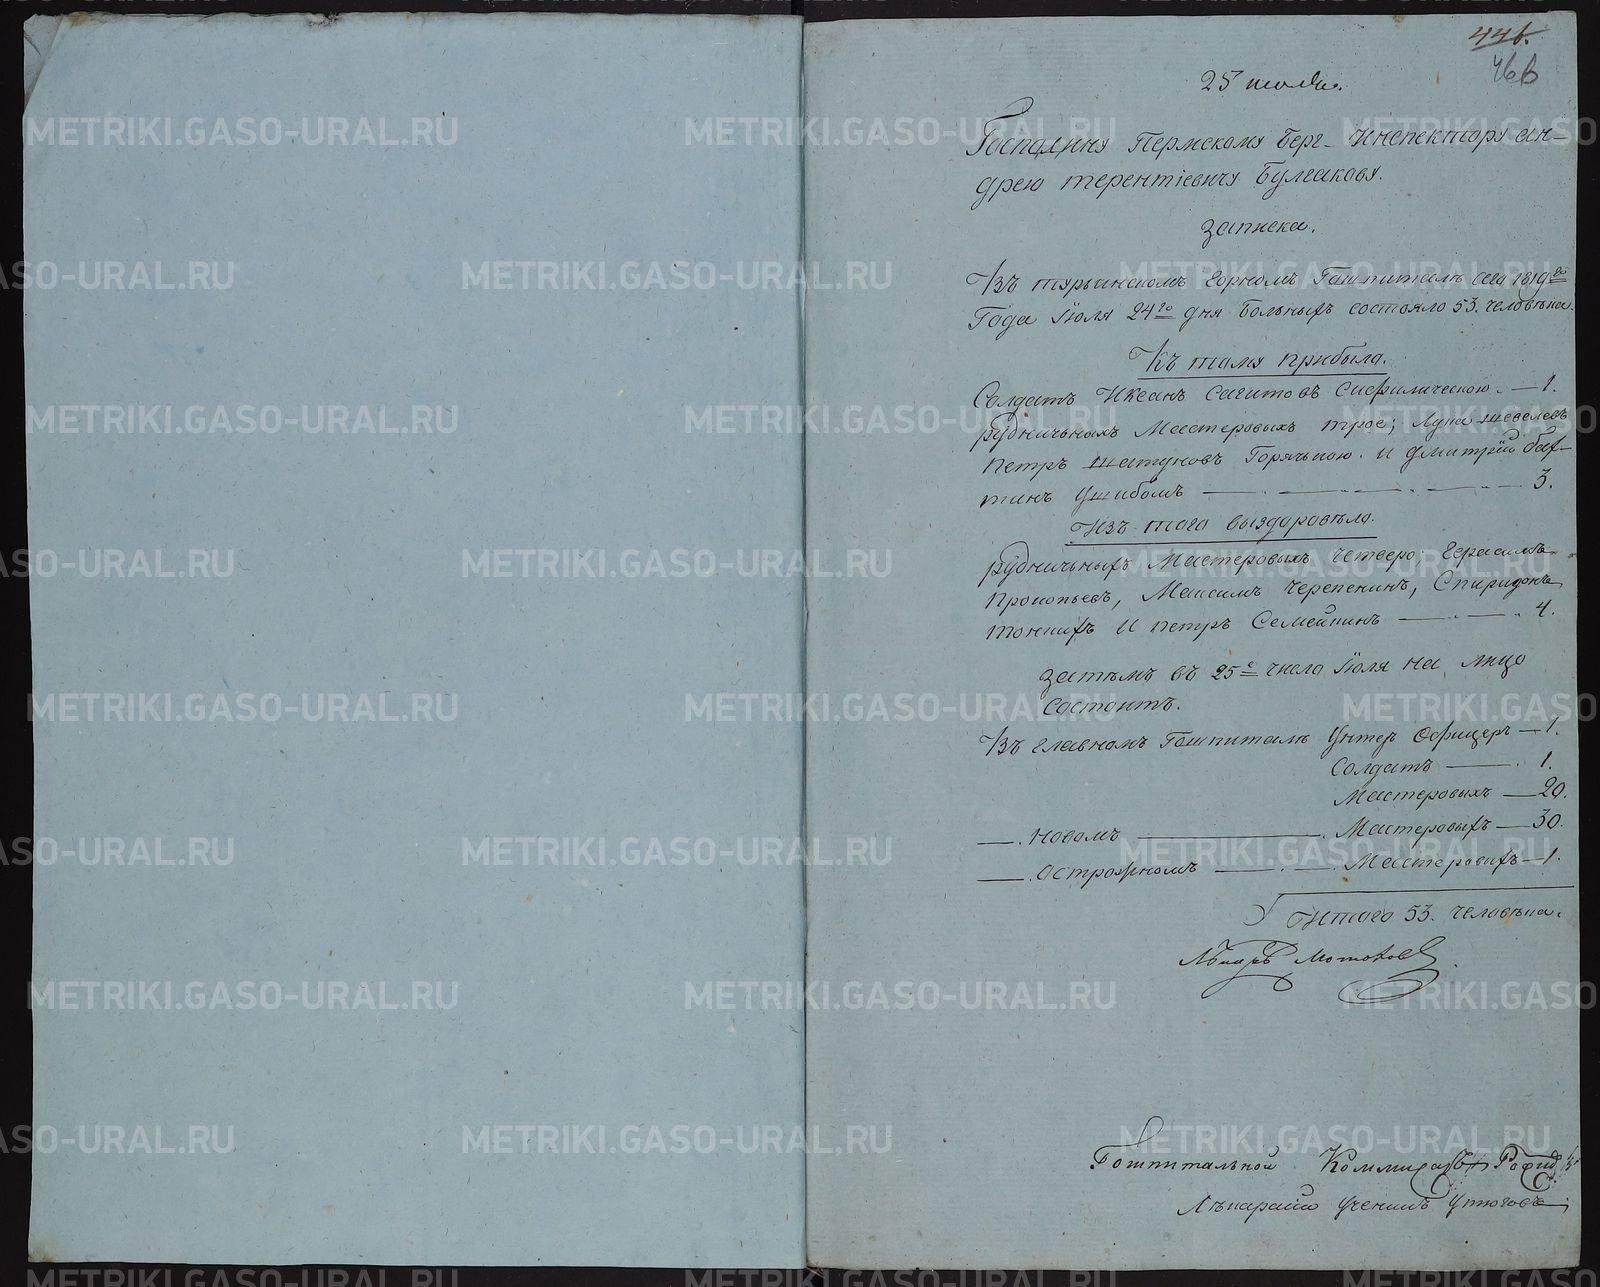 446.
46в
25 июля.
Господину Пермскому Берг-Инспектору Ан-
дрею Терентіевичу Булгакову.
Записка.
Въ Турьинскомъ горномъ Гошпиталѣ сего 1819го
Года Іюля 24го дня больныхъ состояло 53. человѣка.
Къ тому прибыло.
Солдатъ Иксанъ Сагитовъ Сифилическою. — 1.
Рудничныхъ Мастеровыхъ трое; Лука Шевелевъ
Петръ Шатуновъ Горячкою. и Дмитрій Бах-
тинъ Ушибомъ — 3.
Изъ того выздоровѣло.
Рудничныхъ Мастеровыхъ четверо; Герасимъ
Прокопьевъ, Максимъ Черепенинъ, Спиридонъ
Тонкихъ и Петръ Семейкинъ — 4.
Затѣмъ въ 25е число Іюля на лицо
состоитъ.
Въ главномъ Гошпиталѣ Унтеръ Офицеръ — 1.
Солдатъ — 1.
Мастеровыхъ — 20.
— . Новомъ — . Мастеровыхъ — 30.
— . Острожномъ — . — . Мастеровыхъ — 1.
Итого 53. человѣка.
Лѣкарь
Гошпитальной Коммисаръ
Лѣкарской ученикъ Утюговъ
METRIKI.GASO-URAL.RU